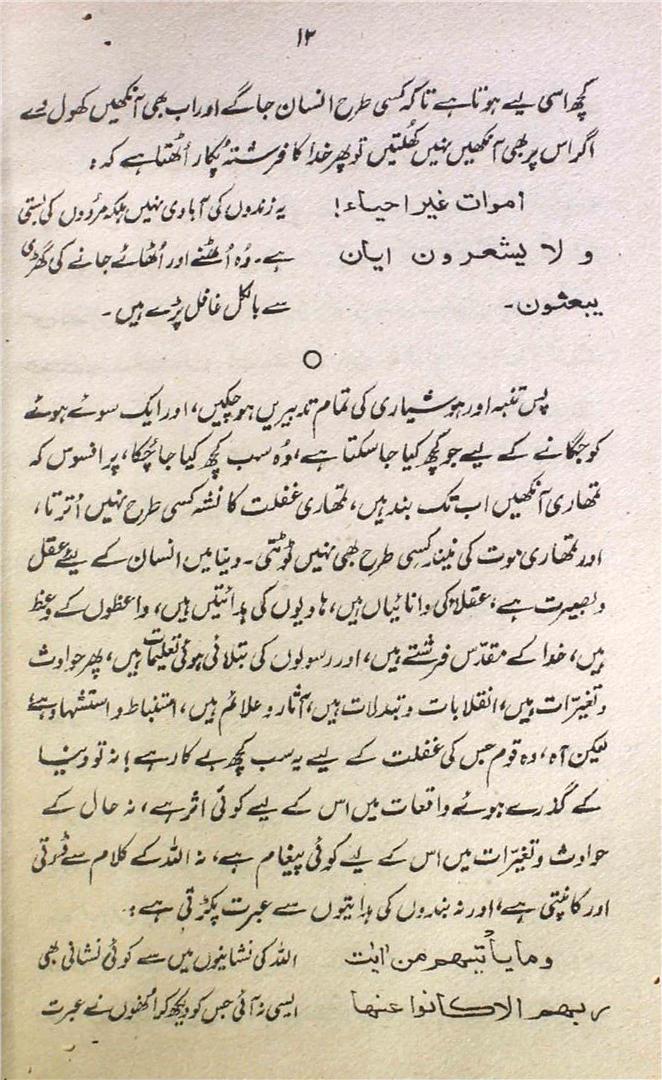 ۱۲
کچھ اسی لیے ہوتا ہے تاکہ کسی طرح انسان جاگے اور اب بھی آنکھیں کھول دے
اگر اس پر بھی آنکھیں نہیں کھُلتیں تو پھر خدا کا فرشتہ پُکار اُٹھتا ہے کہ:
اموات غیر احیاء! یہ زندوں کی آبادی نہیں بلکہ مُردوں کی بستی
و لا یشعرون ایان ہے۔ وُہ اُٹھنے اور اُٹھائے جانے کی گھڑی
یبعثون۔ سے بالکل غافل پڑے ہیں۔
پس تنبہ اور ہوشیاری کی تمام تدبیریں ہو چکیں، اور ایک سوئے ہوئے
کو جگانے کے لیے جو کچھ کیا جا سکتا ہے، وُہ سب کچھ کیا جا چُکا، پر افسوس کہ
تمھاری آنکھیں اب تک بند ہیں، تمھاری غفلت کا نشہ کسی طرح نہیں اُترتا،
اور تمھاری موت کی نیند کسی طرح بھی نہیں ٹوٹتی۔ دنیا میں انسان کے لیئے عقل
و بصیرت ہے، عقلاء کی دانائیاں ہیں، ہادیوں کی ہدائتیں ہیں، واعظوں کے وعظ
ہیں، خدا کے مقدّس فرشتے ہیں، اور رسولوں کی بتلائی ہوئی تعلیمات ہیں، پھر حوادث
و تغیّرات ہیں، انقلابات و تبدلات ہیں، آثار و علائم ہیں، استنباط و استشہاد ہے
لیکن آہ، وہ قوم جس کی غفلت کے لیے یہ سب کچھ بے کار ہے! نہ تو دنیا
کے گذرے ہوئے واقعات میں اس کے لیے کوئی اثر ہے، نہ حال کے
حوادث و تغیّرات میں اس کے لیے کوئی پیغام ہے، نہ اللہ کے کلام سے ڈرتی
اور کانپتی ہے، اور نہ بندوں کی ہدایتوں سے عبرت پکڑتی ہے:
وما یأتیہم من اٰیٰت اللہ کی نشانیوں میں سے کوئی نشانی بھی
ربہم الا کانوا عنہا ایسی نہ آئی جس کو دیکھ کر اُنھوں نے عبرت